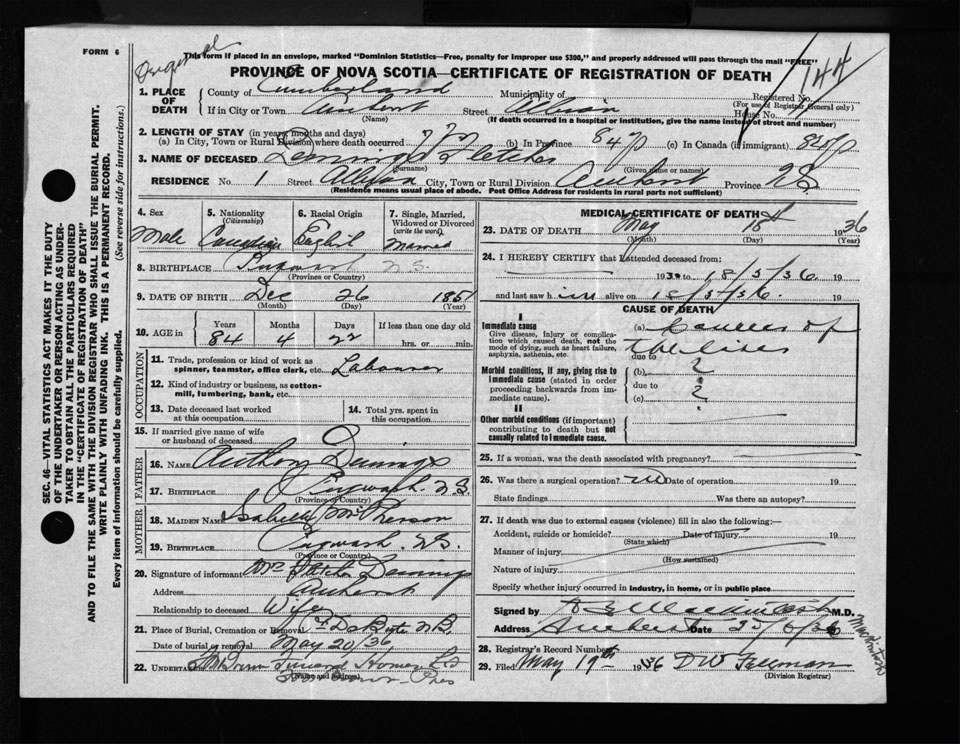 FORM 6
This form if placed in an envelope, marked "Dominion Statistics—Free, penalty for improper use $300," and properly addressed will pass through the mail "FREE"
144
PROVINCE OF NOVA SCOTIA—CERTIFICATE OF REGISTRATION OF DEATH
1. PLACE OF DEATH
County of Cumberland Municipality of Registered No.
(For use of Registrar General only)
If in City or Town Amherst Street Albion House No.
(Name) (If death occurred in a hospital or institution, give the name instead of street and number)
2. LENGTH OF STAY (in years, months and days)
(a) In City, Town or Rural Division where death occurred (b) In Province 84 (c) In Canada (if immigrant)
3. NAME OF DECEASED Fletcher
(Surname) (Given name or names)
RESIDENCE No. 1 Street City, Town or Rural Division Amherst Province NS
(Residence means usual place of abode. Post Office Address for residents in rural parts not sufficient)
4. Sex
Male
5. Nationality
(Citizenship)
Canadian
6. Racial Origin
English
7. Single, Married, Widowed or Divorced
(write the word)
Married
8. BIRTHPLACE Pugwash N.S.
(Province or Country)
9. DATE OF BIRTH Dec 26 1851
(Month) (Day) (Year)
10. AGE in
Years Months Days If less than one day old
84 4 22 hrs. or min.
OCCUPATION
11. Trade, profession or kind of work as spinner, teamster, office clerk, etc. Labourer
12. Kind of industry or business, as cotton-mill, lumbering, bank, etc.
13. Date deceased last worked at this occupation
14. Total yrs. spent in this occupation
15. If married give name of wife or husband of deceased
FATHER
16. NAME
17. BIRTHPLACE Pugwash N.S.
(Province or Country)
MOTHER
18. MAIDEN NAME
19. BIRTHPLACE Pugwash N.S.
(Province or Country)
20. Signature of informant Mrs
Address Amherst
Relationship to deceased Wife
21. Place of Burial, Cremation or Removal
Date of burial or removal May 20/36
22. UNDERTAKER
(Name and address)
MEDICAL CERTIFICATE OF DEATH
23. DATE OF DEATH May 18 1936
(Month) (Day) (Year)
24. I HEREBY CERTIFY that I attended deceased from
19 to 18/5/36 19
and last saw him alive on 18/5/36 19
CAUSE OF DEATH
I
Immediate cause
Give disease, injury or complication which caused death, not the mode of dying, such as heart failure, asphyxia, asthenia, etc.
(a) Cancer of
the
due to
Morbid conditions, if any, giving rise to immediate cause (stated in order proceeding backwards from immediate cause).
(b) ?
due to
(c) ?
II
Other morbid conditions (if important) contributing to death but not causally related to immediate cause.
25. If a woman, was the death associated with pregnancy?
26. Was there a surgical operation? no Date of operation 19
State findings Was there an autopsy?
27. If death was due to external causes (violence) fill in also the following:—
Accident, suicide or homicide? Date of injury 19
(State which)
Manner of injury
(How sustained)
Nature of injury
Specify whether injury occurred in industry, in home, or in public place
Signed by M.D.
Address Amherst Date
28. Registrar's Record Number
29. Filed May 19th 1936 D W Freeman
(Division Registrar)
SEC. 46—VITAL STATISTICS ACT MAKES IT THE DUTY OF THE UNDERTAKER OR PERSON ACTING AS UNDERTAKER TO OBTAIN ALL THE PARTICULARS REQUIRED IN THE "CERTIFICATE OF REGISTRATION OF DEATH"
AND TO FILE THE SAME WITH THE DIVISION REGISTRAR WHO SHALL ISSUE THE BURIAL PERMIT.
WRITE PLAINLY WITH UNFADING INK. THIS IS A PERMANENT RECORD.
Every item of information should be carefully supplied. (See reverse side for instructions.)